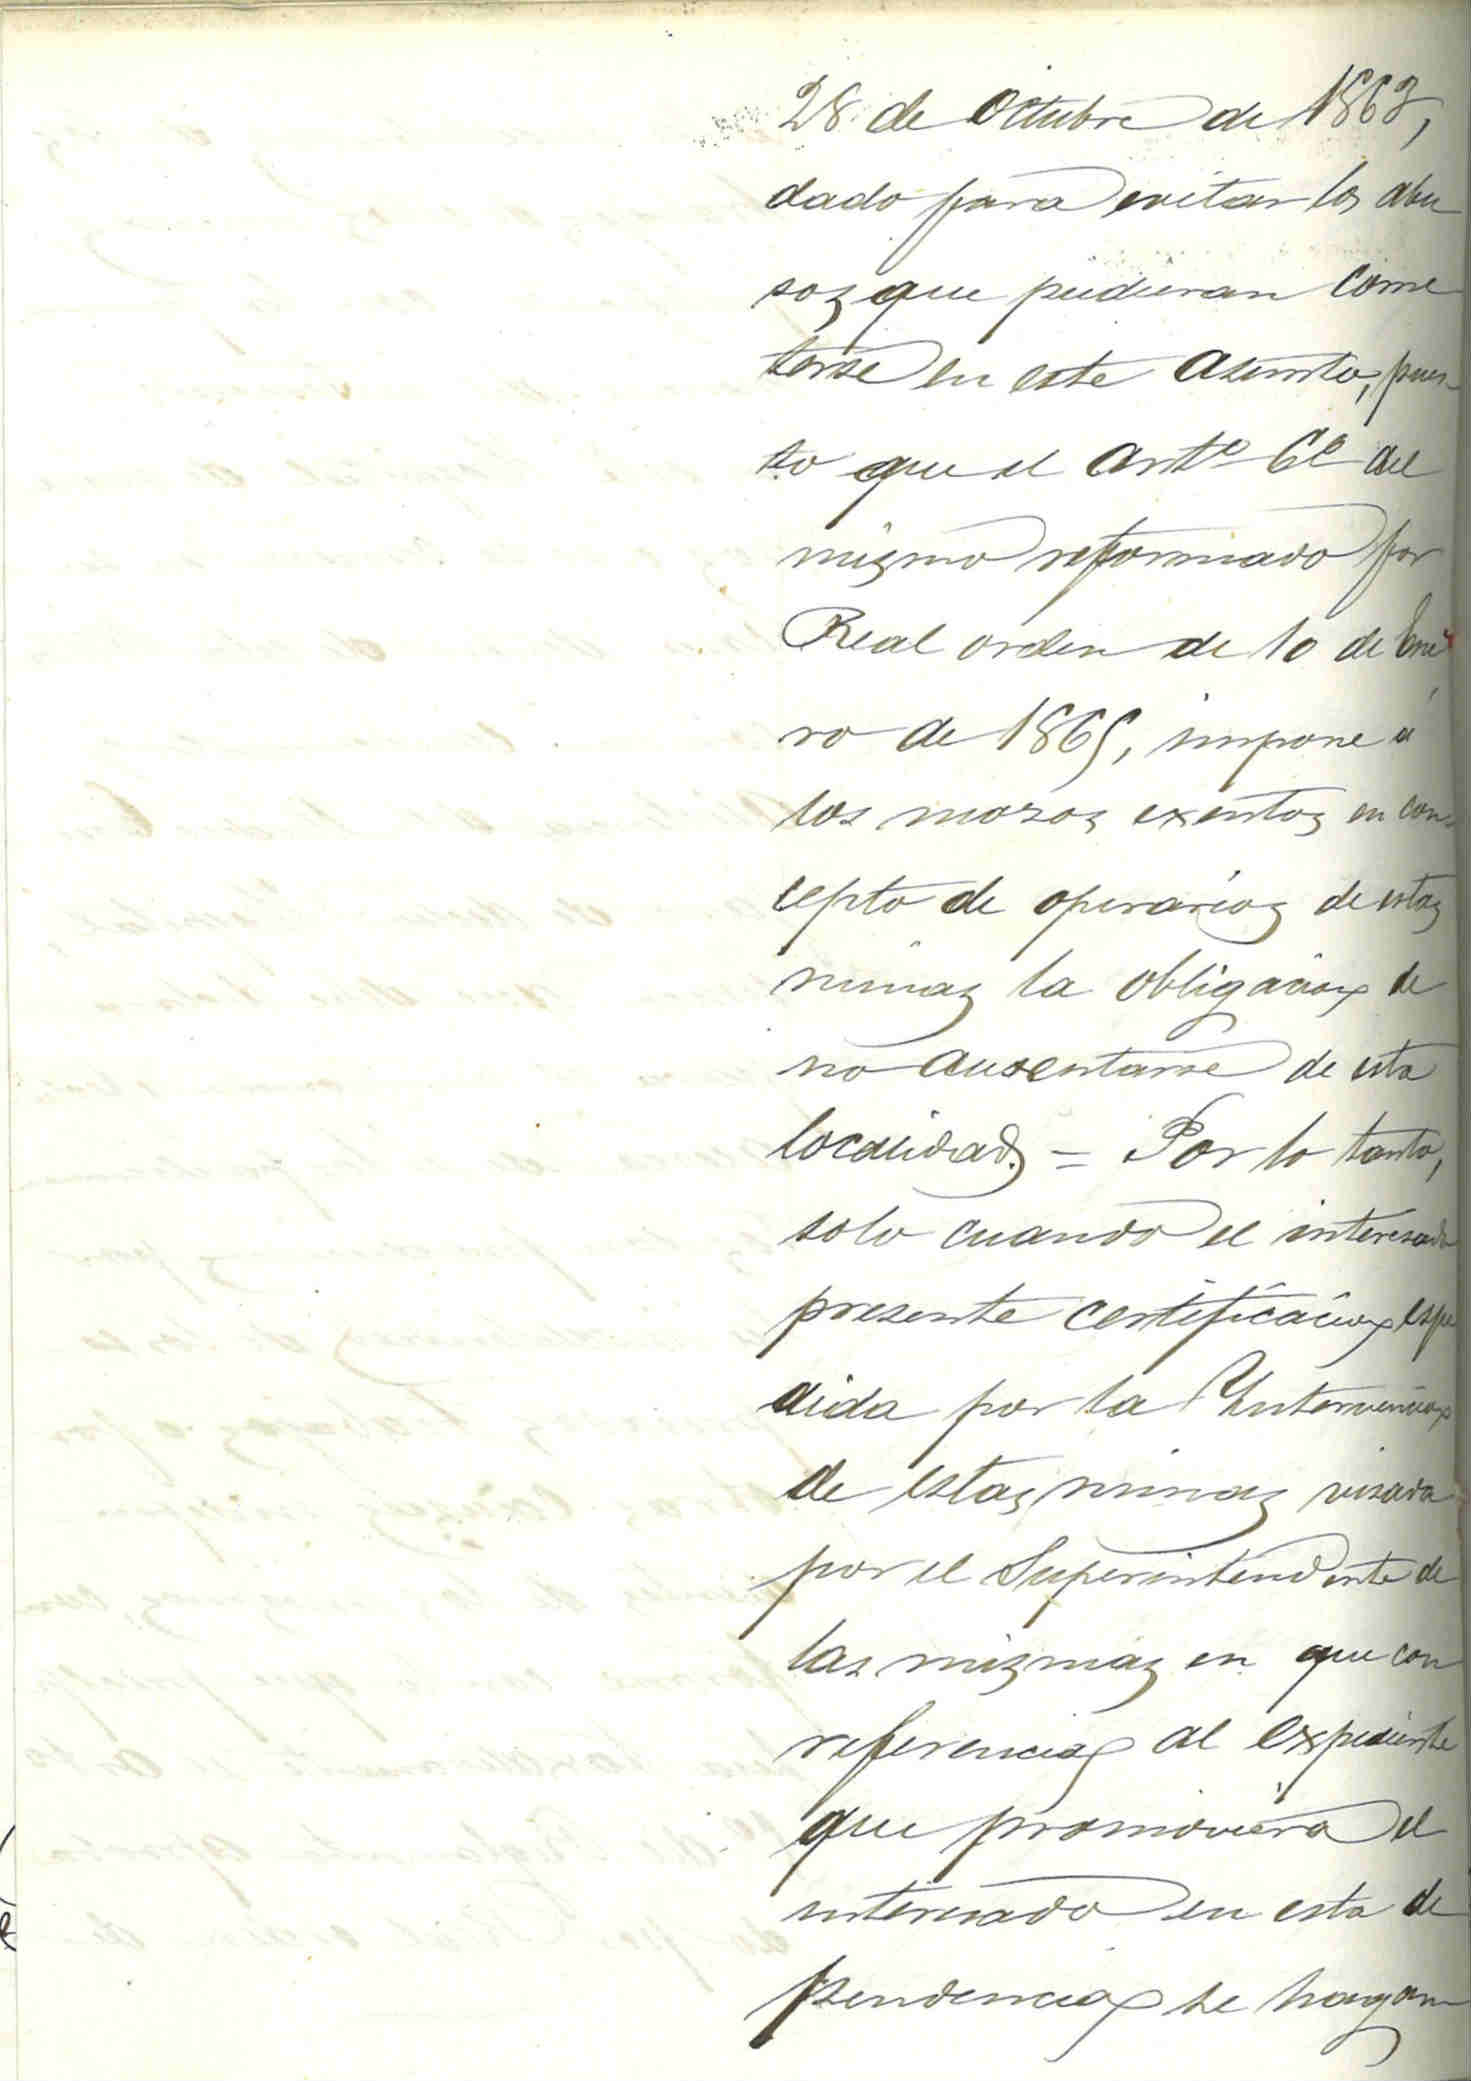 28 de Octubre de 1863,
dado para evitar los abu
sos que pudieran come
terse en este asunto, pues
to que el artº 6º del
mismo reformado por
Real orden de 10 de Ene
ro de 1865, impone á
los mozos exentos en con
cepto de operarios de estas
minas la obligacion de
no ausentarse de esta
localidad. = Por lo tanto,
solo cuando el interesado
presente certificacion espe
dida por la Intervencion
de estas minas visada
por el Superintendente de
las mismas en que con
referencia al expediente
que promoviera el
interesado en esta de
pendencia se hagan